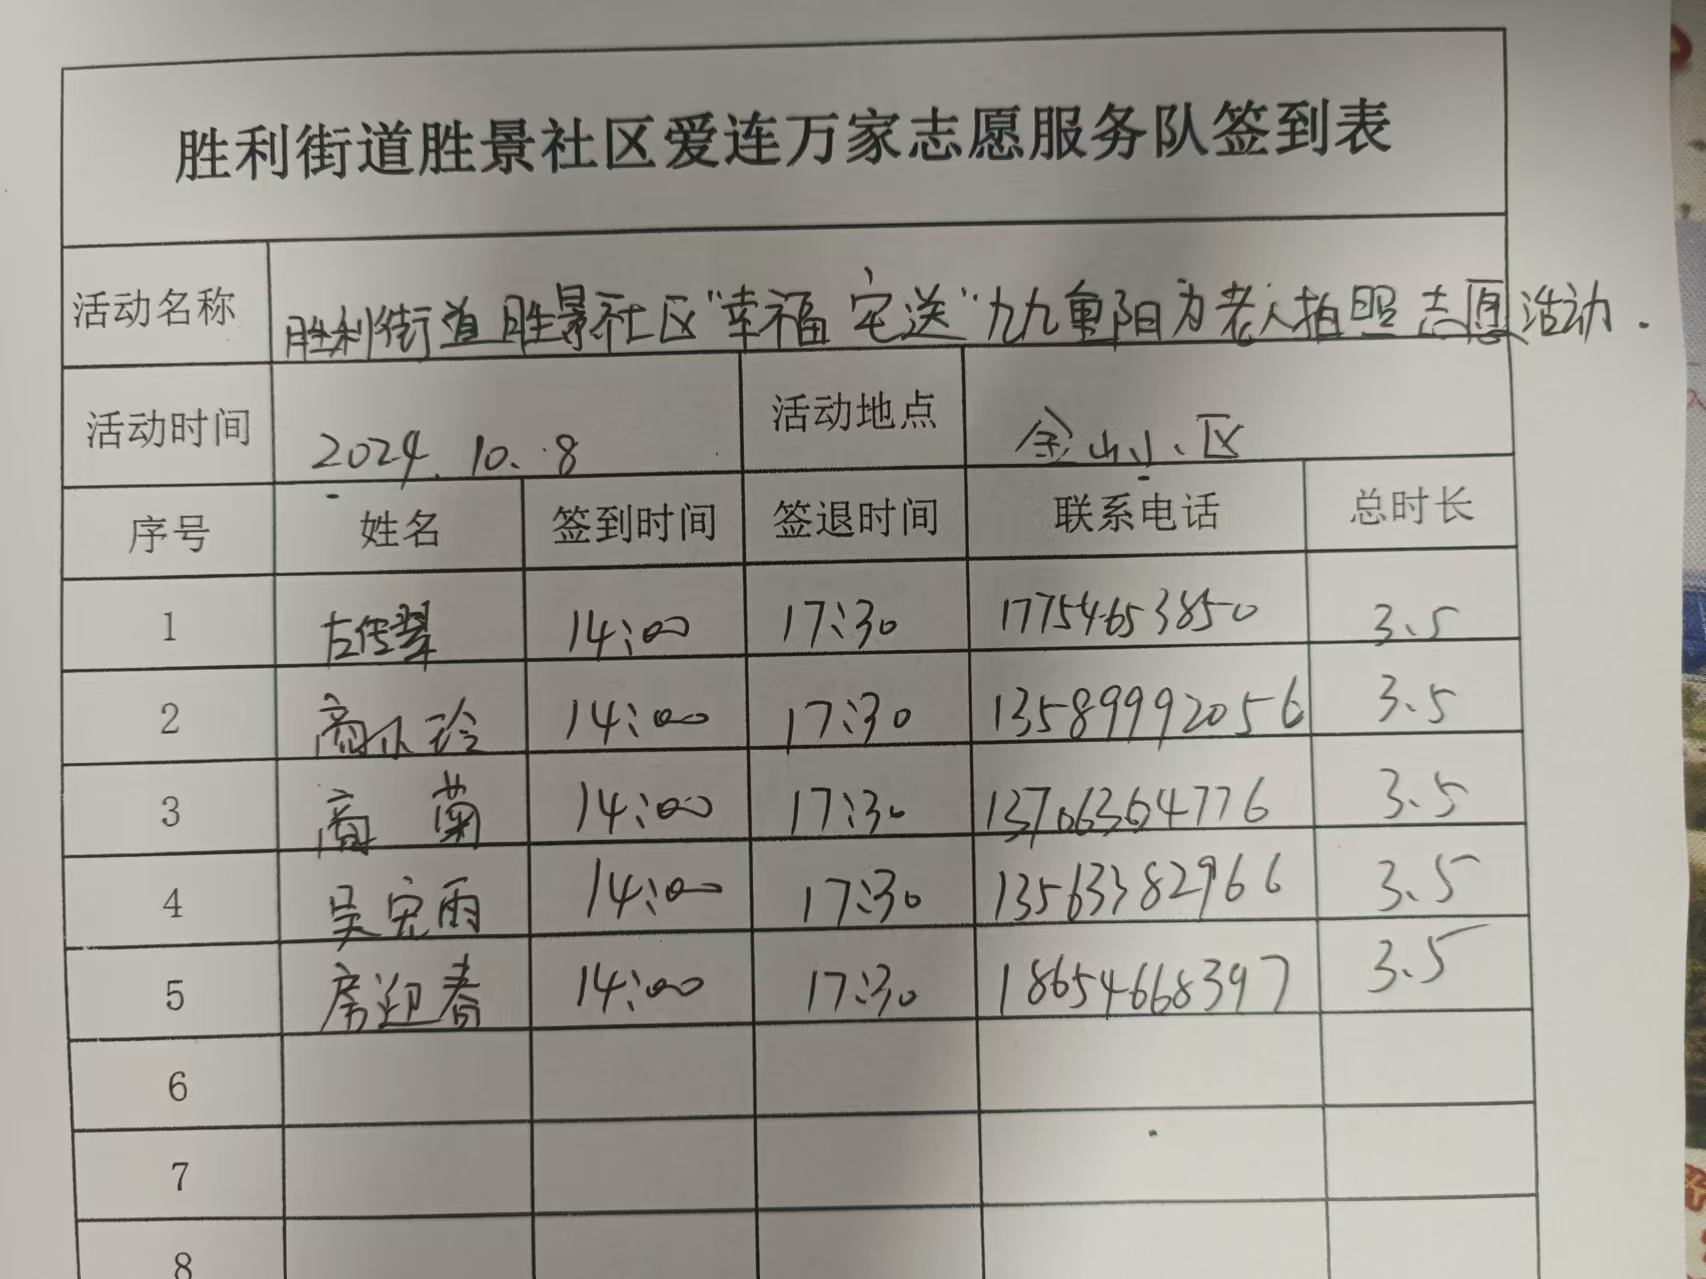 胜利街道胜景社区爱连万家志愿服务队签到表
活动名称 胜利街道胜景社区"幸福定送"九九重阳为老人拍照志愿活动.
活动时间 2024.10.8 活动地点 金山小区
序号 姓名 签到时间 签退时间 联系电话 总时长
1 左传翠 14:00 17:30 17754653850 3.5
2 商小玲 14:00 17:30 13589992056 3.5
3 商菊 14:00 17:30 13706364776 3.5
4 吴宪雨 14:00 17:30 13563382966 3.5
5 席迎春 14:00 17:30 18654668397 3.5
6
7
8